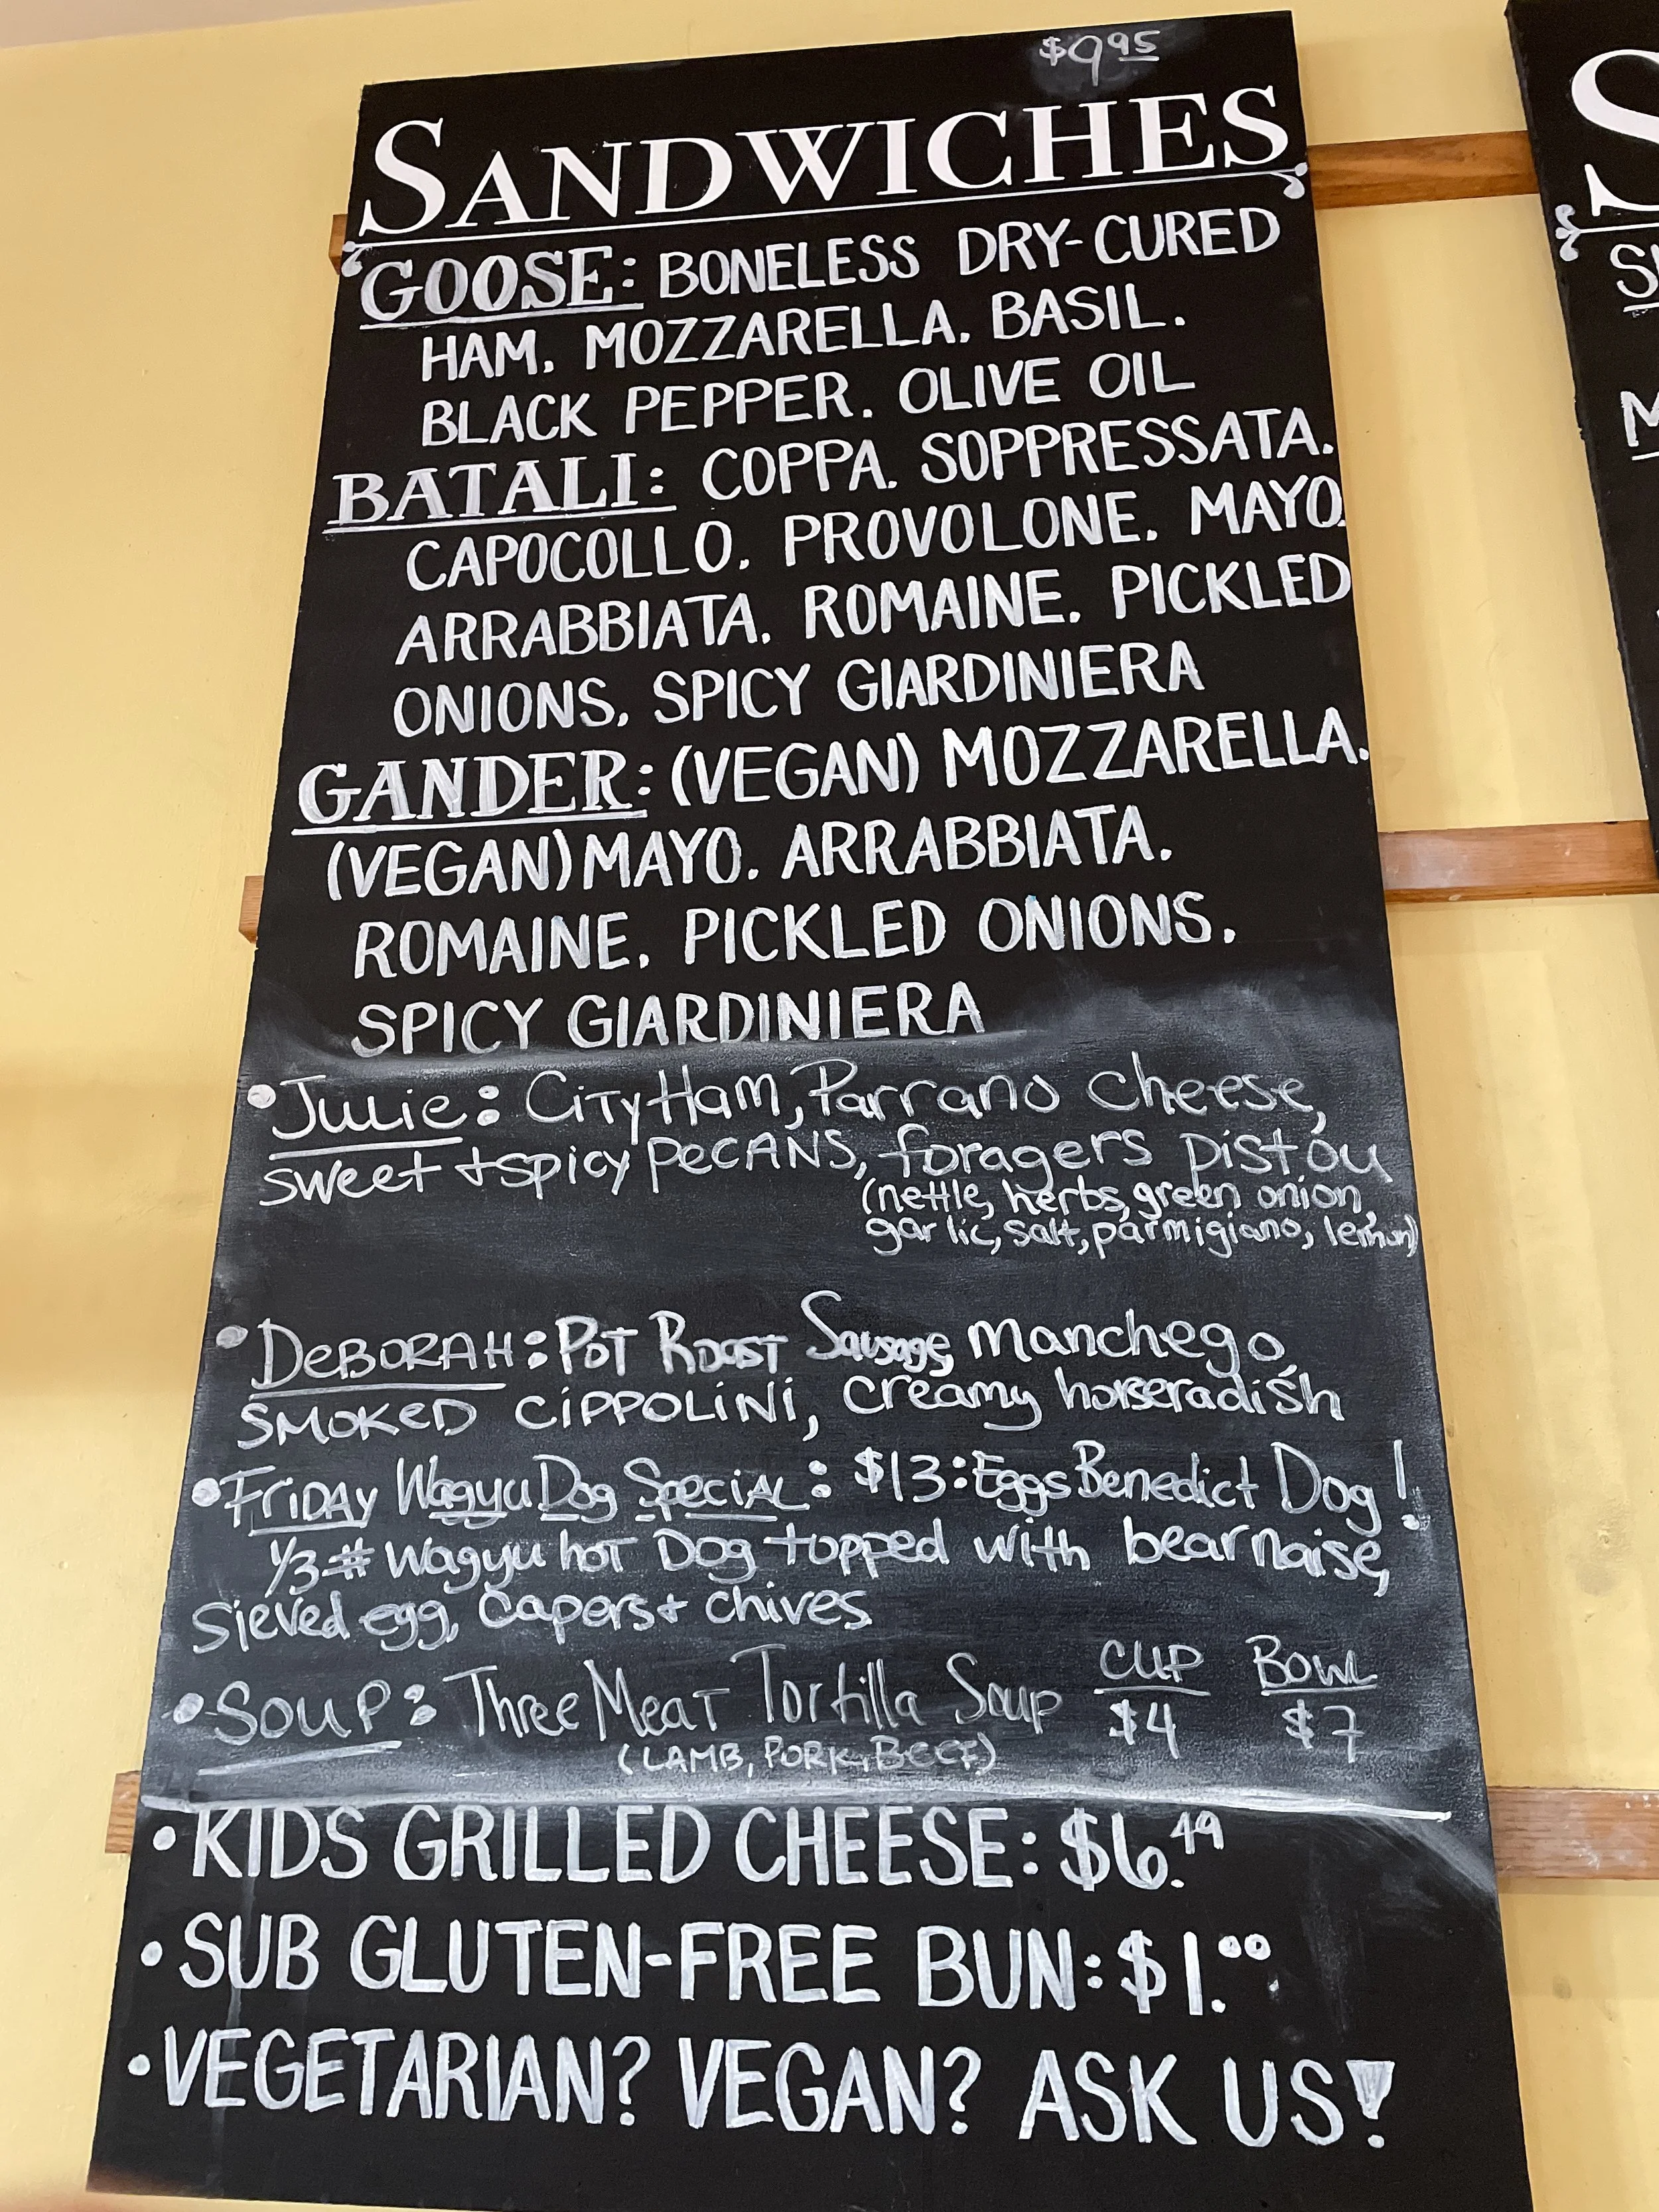 $9 95
SANDWICHES
GOOSE: BONELESS DRY-CURED
HAM. MOZZARELLA. BASIL.
BLACK PEPPER. OLIVE OIL
BATALI: COPPA. SOPPRESSATA.
CAPOCOLLO. PROVOLONE. MAYO.
ARRABBIATA. ROMAINE. PICKLED
ONIONS. SPICY GIARDINIERA
GANDER: (VEGAN) MOZZARELLA.
(VEGAN) MAYO. ARRABBIATA.
ROMAINE. PICKLED ONIONS.
SPICY GIARDINIERA
• Julie: City Ham, Parrano cheese,
sweet + spicy pecans, foragers pistou
(nettle, herbs, green onion,
garlic, salt, parmigiano, lemon)
• DeBORAH: POT ROAST Sausage, Manchego,
SMOKED CIPPOLINI, creamy horseradish
• FRIDAY Wagyu Dog Special: $13: Eggs Benedict Dog!
1/3 # Wagyu hot Dog topped with bearnaise,
Sieved egg, Capers + chives
• SOUP: Three Meat Tortilla Soup CUP $4 BOWL $7
(LAMB, PORK, BEEF)
• KIDS GRILLED CHEESE: $6.49
• SUB GLUTEN-FREE BUN: $1.00
• VEGETARIAN? VEGAN? ASK US!